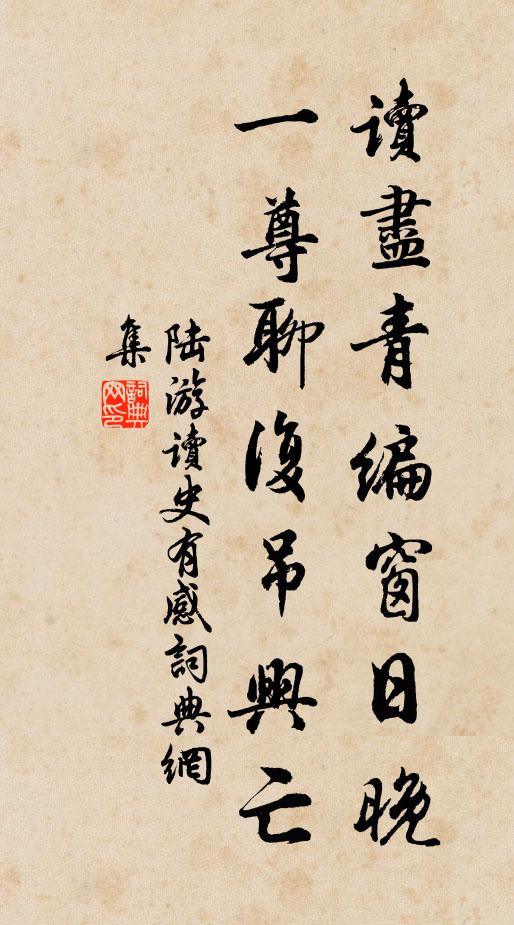 讀盡青編窗日晚
一尊聊復吊興亡
陆游讀史有感詞典網
集
詞典
网印